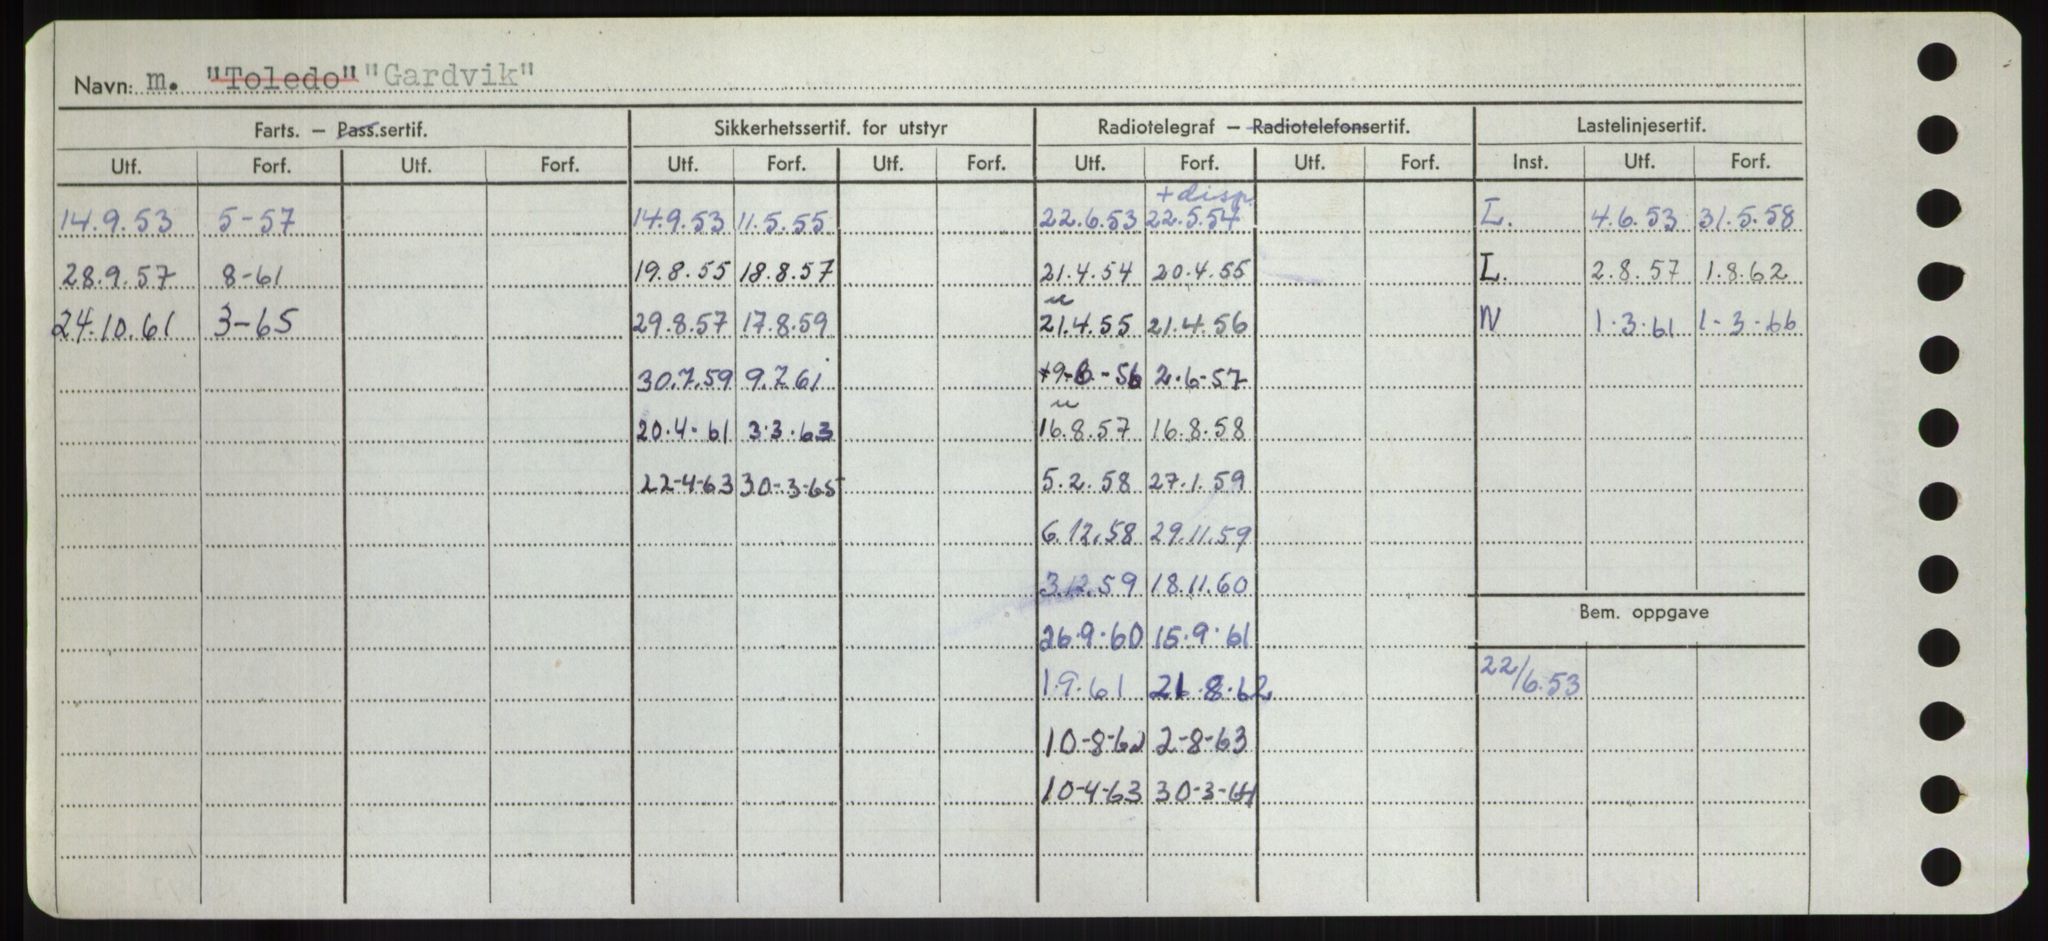 Navn: m. "Toledo" "Gardvik"
Farts. – Pass.sertif. Sikkerhetssertif. for utstyr Radiotelegraf – Radiotelefonsertif. Lastelinjesertif.
Utf. Forf. Utf. Forf. Utf. Forf. Utf. Forf. Utf. Forf. Utf. Forf. Inst. Utf. Forf.
+ disp.
14.9.53 5-57 14.9.53 11.5.55 22.6.53 22.5.54 L. 4.6.53 31.5.58
28.9.57 8-61 19.8.55 18.8.57 21.4.54 20.4.55 L. 2.8.57 1.8.62
24.10.61 3-65 29.8.57 17.8.59 21.4.55 21.4.56 N 1.3.61 1-3-66
30.7.59 9.7.61 2.6-57
20.4.61 3.3.63 16.8.57 16.8.58
22-4-63 30-3-65 5.2.58 27.1.59
6.12.58 29.11.59
3.12.59 18.11.60
Bem. oppgave
26.9.60 15.9.61
1.9.61 21.8.62 22/6.53
10-8-62 2-8-63
10-4-63 30-3-64